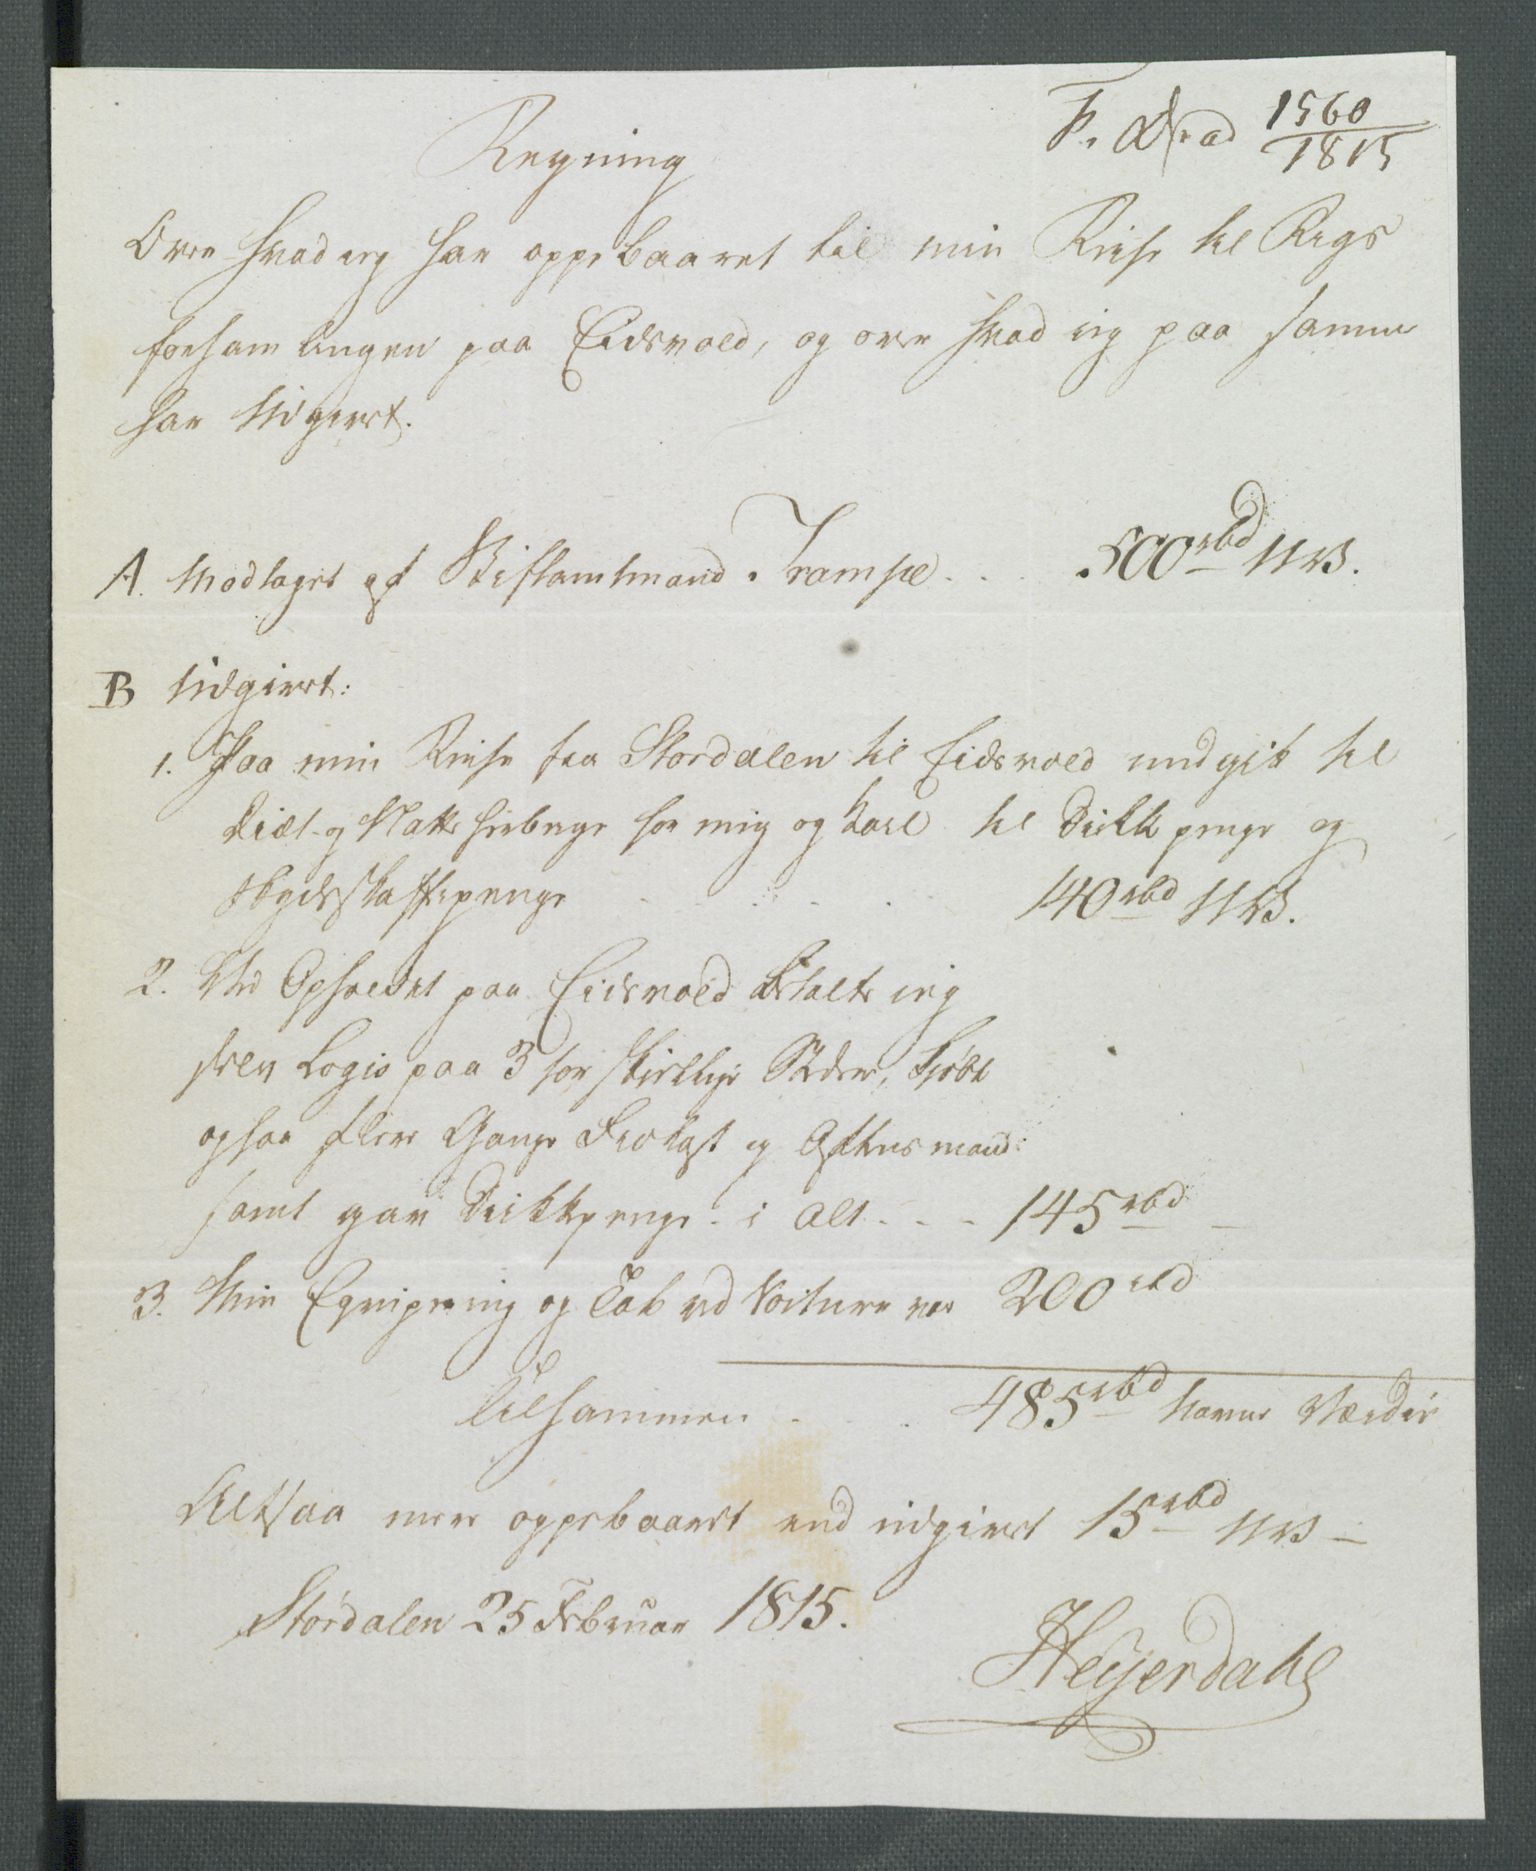 1560
1815
Regning
Over hvad jeg har oppebaaret til min Reise til Rigs
forsamlingen paa Eidsvold, og over hvad jeg paa samme
har Udgivet.
A. Modtaget af Stiftamtmand Trampe . . . 500 rbd NV.
B Udgivet:
1. Paa min Reise fra Stordalen til Eidsvold undgik til
Diæt og Natte herberge for mig og Karl til Drikkpenge og
Skydsskaffepenge . . . . . 140 rbd NV.
2. Ved Opholdet paa Eidsvold betalte jeg
selv Logis paa 3 forskiellige Stæder, kjøbte
ogsaa flere Gange Frokost og Aftensmad:
samt gav Drikkpenge - i Alt . - - 145 rbd -
3. Min Eqvipering og Tab ved Voiture var 200 rbd
Tilsammen - . 485 rbd Navne Værdie
Altsaa mere oppebaaret end udgivet 15 rbd NV -
Størdalen 25 Februar 1815.
Heyerdahl